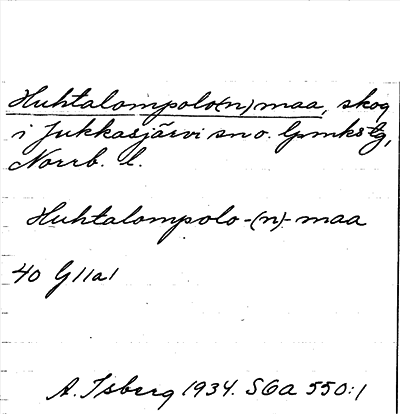 Huhtalompolo(n)maa, skog
i Jukkasjärvi sn o. lpmkstg,
Norrb. l.
Huhtalompolo-(n)-maa
40 G11a1
A. Isberg 1934. SGA 550:1